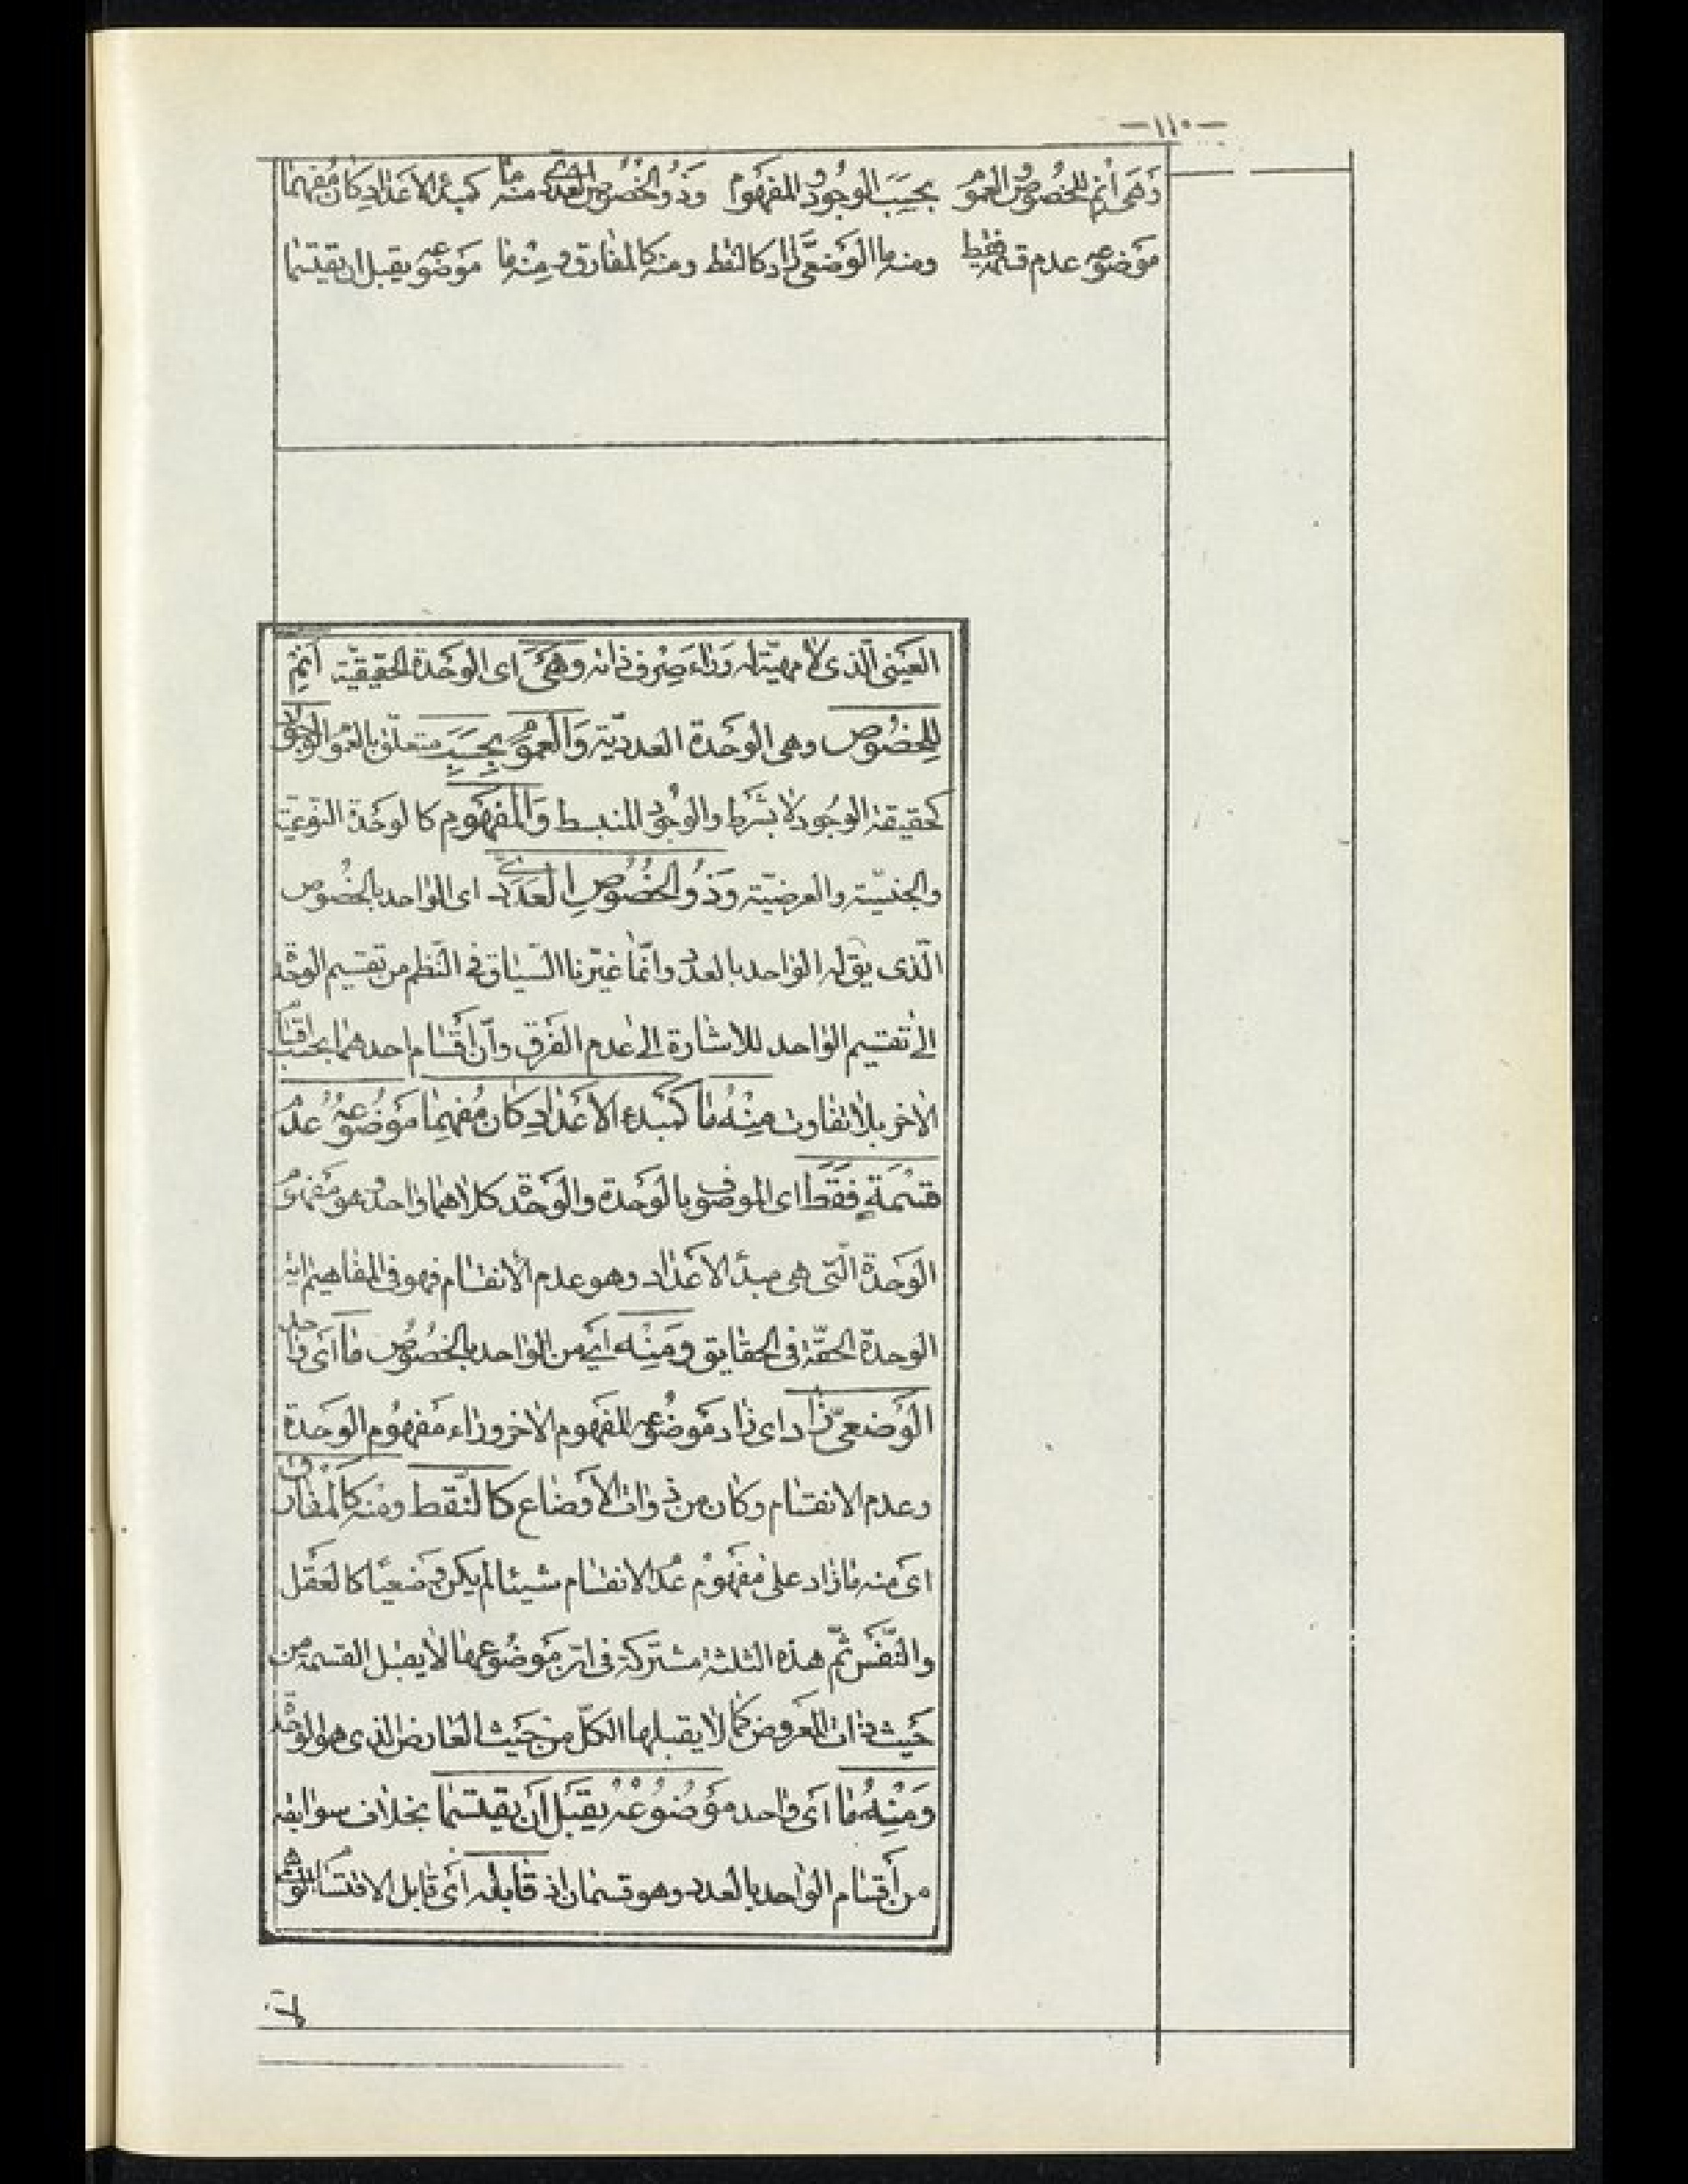 -١١٠-
وَهَى انمِ للخُصُوصُ العمُو بحَسَبَ الوجُودُ المفهَوم وَذُو الخُصُوصِ العدَدى منه ما كمبدَء الاعَدٰادِ كَان مُفهِمٰا
مَوَضوعه عدم قسمة فقط ومنه ما الوَضعَّى زٰاد كالنقط ومنه كالمفٰارق ومِنْه مٰا مَوضوعه يقبل ان يقتسمٰا
العَينى الّذى لا مهيّة له وَرٰاءَ صِرف ذاته وهَىَ اى الوحَدة الحقيقيّة أنمِ
لِلخصُوص وهى الوحَدة العدديّة وَالعمُوُ بِحَسَبَ متعلّق بالعمُو الوجُود
كحقيقة الوجُود لا بشَرط والوجُود المنبسط وَالمفهَوم كالوحَدة النّوعيّة
والجنسيّة والعرضيّة وَذُو الخُصُوصِ العَدَدىّ اى الوٰاحد بالخصُوص
الّذى يق له الوٰاحد بالعدد وانّمٰا غيّرنا السّيٰاق فى النّظم من تقسيم الوحدة
الىٰ تقسيم الوٰاحد للاشٰارة الىٰ عدم الفَرق وانّ اقَسٰام احدهمٰا بحسب اقسٰام
الاخر بلا تفٰاوت مِنْهُ مٰا كَمبدء الاعَدٰادِ كٰان مُفهِمٰا مَوضُوعهُ عدُم
قسْمَةٍ فقَطَ اى الموصُوف بالوَحدة والوَحدة كلاهمٰا وٰاحد وهو مَفهُوم
الوَحدة الّتى هى مبدَء الاعَدٰاد وهو عدم الانقسٰام فهو فى المفٰاهيم اية
الوحدة الحقّة فى الحقٰايق ومَنِْه اىَ من الوٰاحد بالخصُوص مٰا اىَ وٰاحد
الوَضعىّ زٰاد اى زٰاد مَوضُوعه المفَهوم الاخر ورٰاء مَفهُوم الوحَدة
وعدم الانقسٰام وكٰان من ذوٰات الاوَضٰاع كالنّقط ومنه كَالمفٰارق
اىَ منه مٰا زٰاد على مفَهُوم عدم الانقسٰام شيئا لم يكن وضَعيًّا كالعَقل
والنّفَس ثمّ هذه الثلثة مشتركة فى انّ مَوضُوعهٰا لا يقبل القسمة من
حَيث ذات المعَروض كمٰا لا يقبلهٰا الكلّ من حَيث العٰارض الذى هو الوحدة
ومَنْهُ مٰا اىَ وٰاحد مَوضُوعُهُ يقَبَل اَن يقتسمٰا بخلاف سوٰابقه
من أقسٰام الوٰاحد بالعدد وهو قسمٰان اذ قٰابله اىَ قٰابل الاقتسٰام